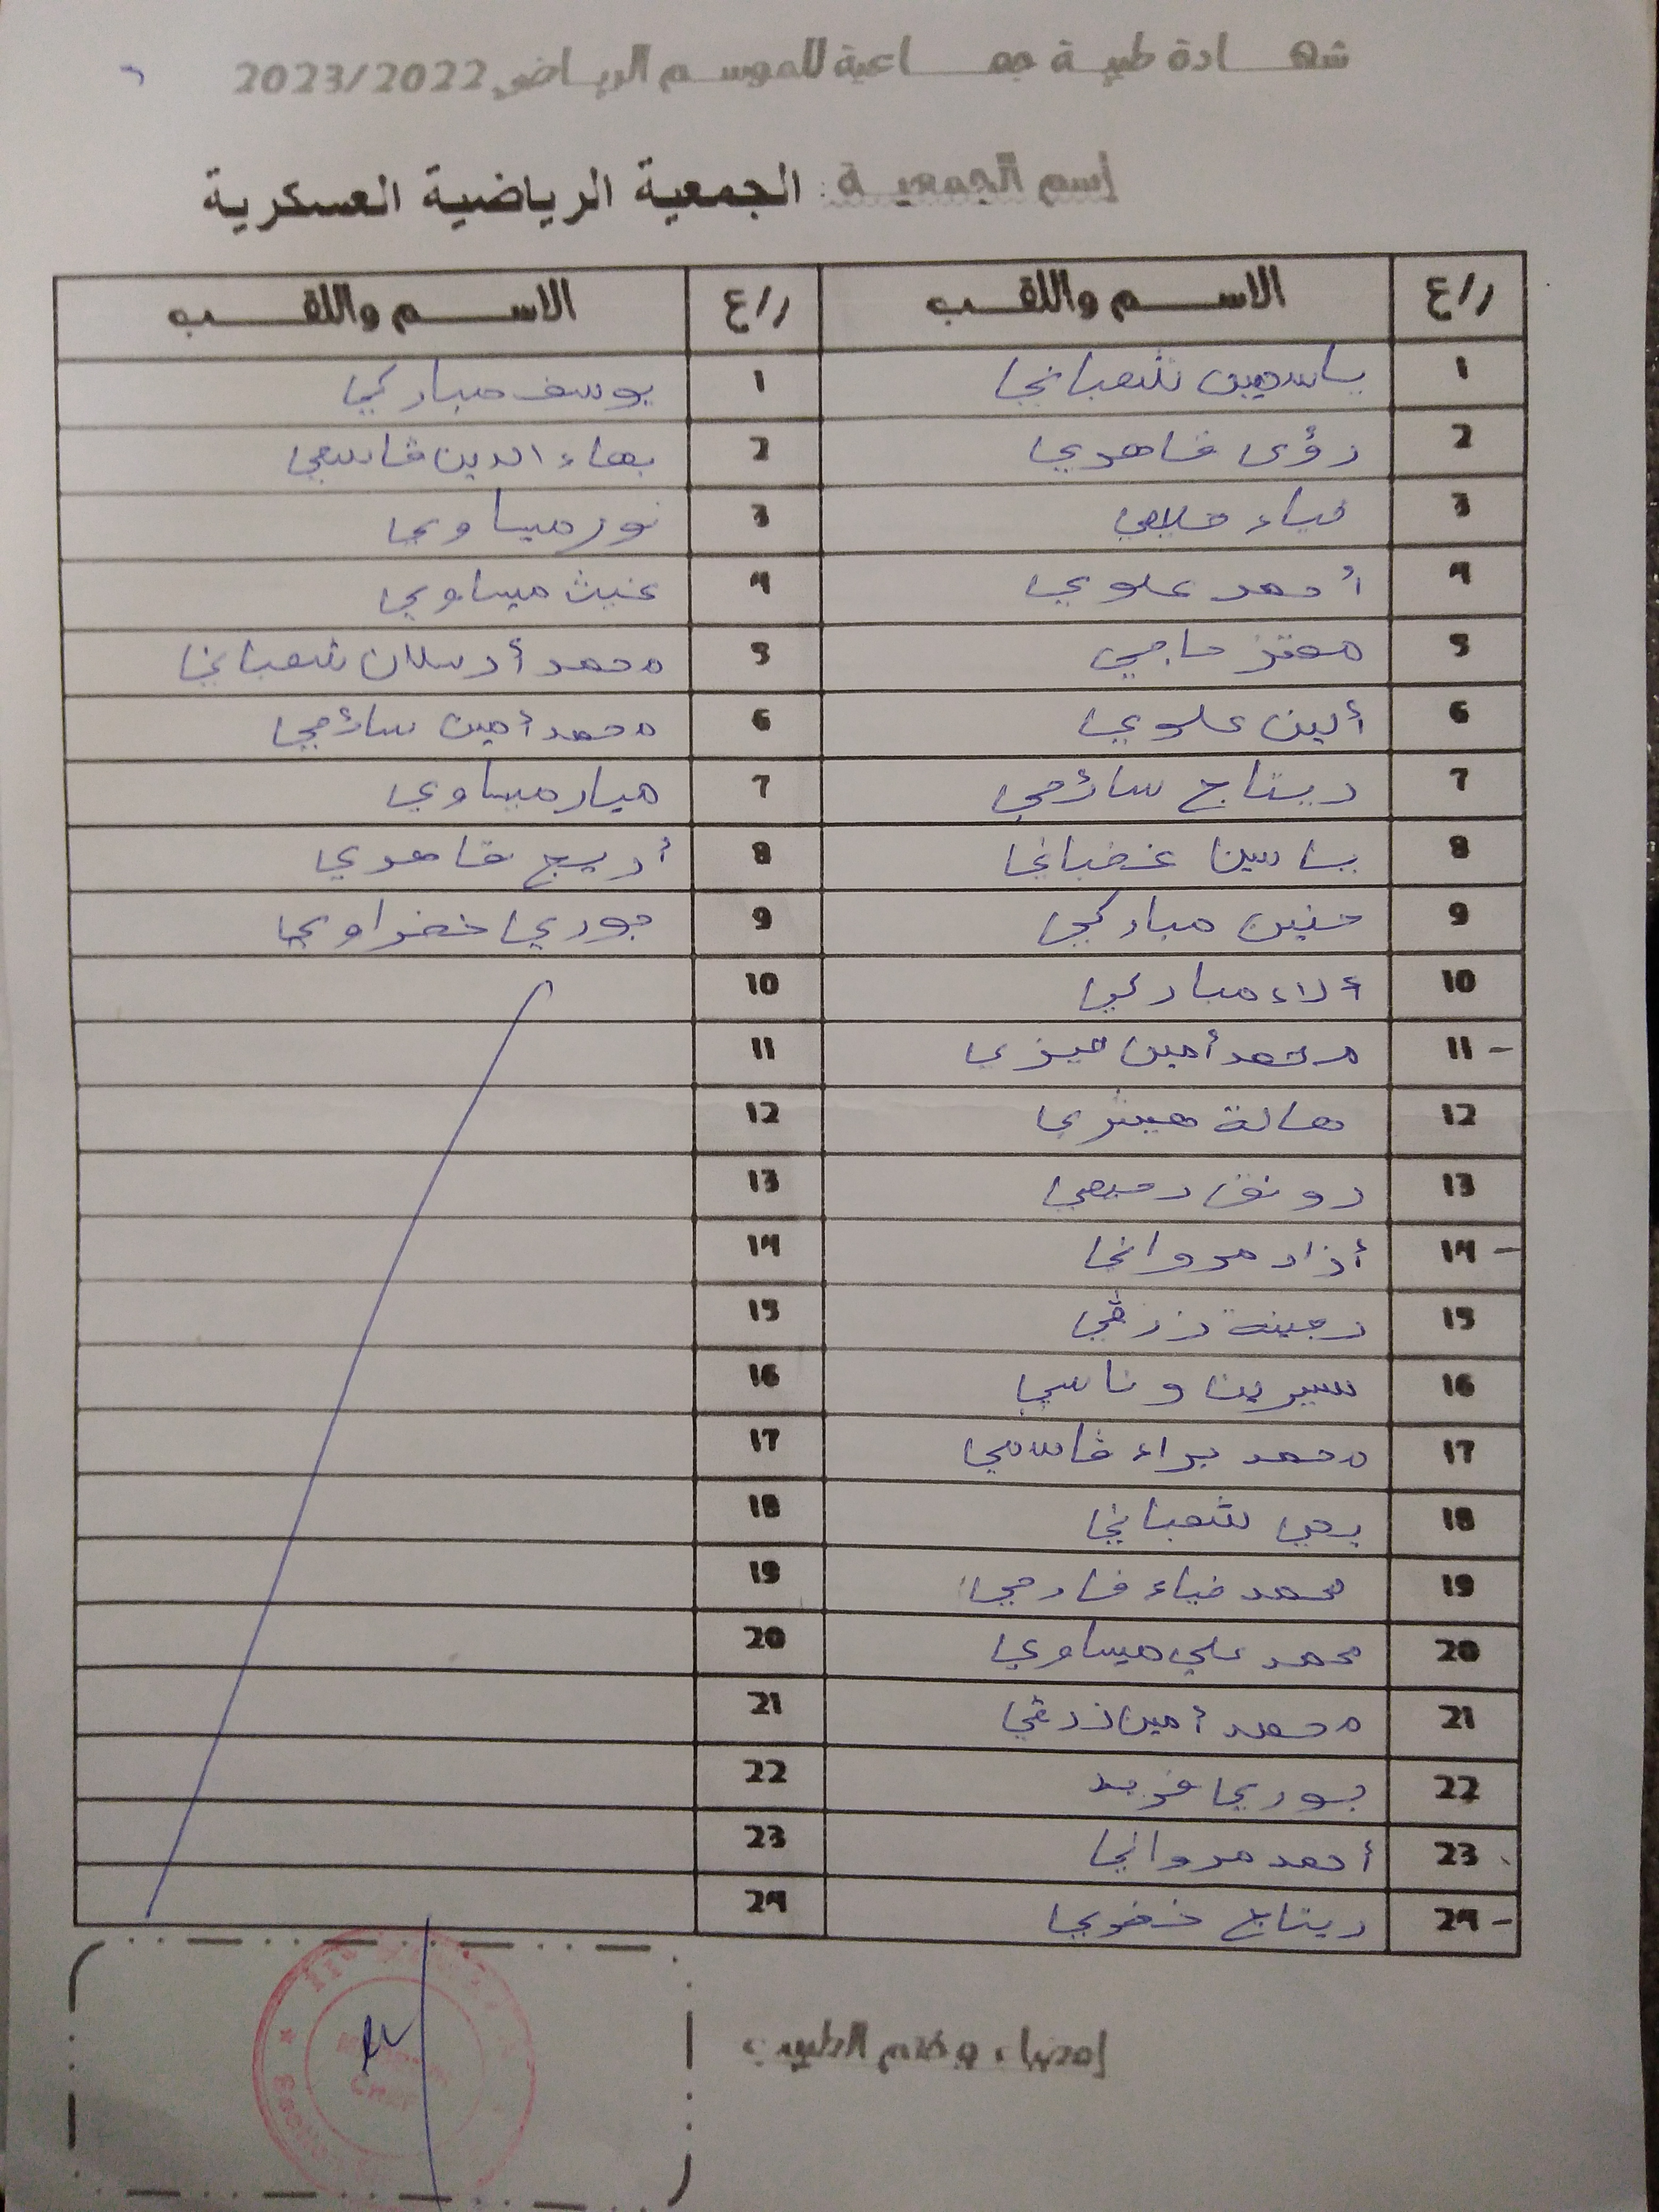 شهادة طبية جماعية للموسم الرياضي 2023/2022
إسم الجمعية : الجمعية الرياضية العسكرية
ر/ع الاسم واللقب ر/ع الاسم واللقب
1 ياسمين شعباني 1 يوسف مباركي
2 رؤى قاهري 2 بهاء الدين قاسمي
3 ضياء 3 نور ميساوي
4 أحمد علوي 4 غيث ميساوي
5 معتز حاجي 5 محمد أرسلان شعباني
6 ألين علوي 6 محمد أمين سائحي
7 ريتاج سائحي 7 ميار ميساوي
8 ياسين غضباني 8 أريج قاهري
9 حنين مباركي 9 جوري خضراوي
10 ألاء مباركي 10
11 - محمد أمين ميزي 11
12 هالة 12
13 رونق ربيعي 13
14 - أزاد مرواني 14
15 رجينة زرقي 15
16 سيرين وناسي 16
17 محمد براء قاسمي 17
18 يحي شعباني 18
19 محمد ضياء 19
20 محمد علي ميساوي 20
21 محمد أمين زرقي 21
22 جوري فريد 22
23 أحمد مرواني 23
24 - ريتاج 24
إمضاء وختم الطبيب